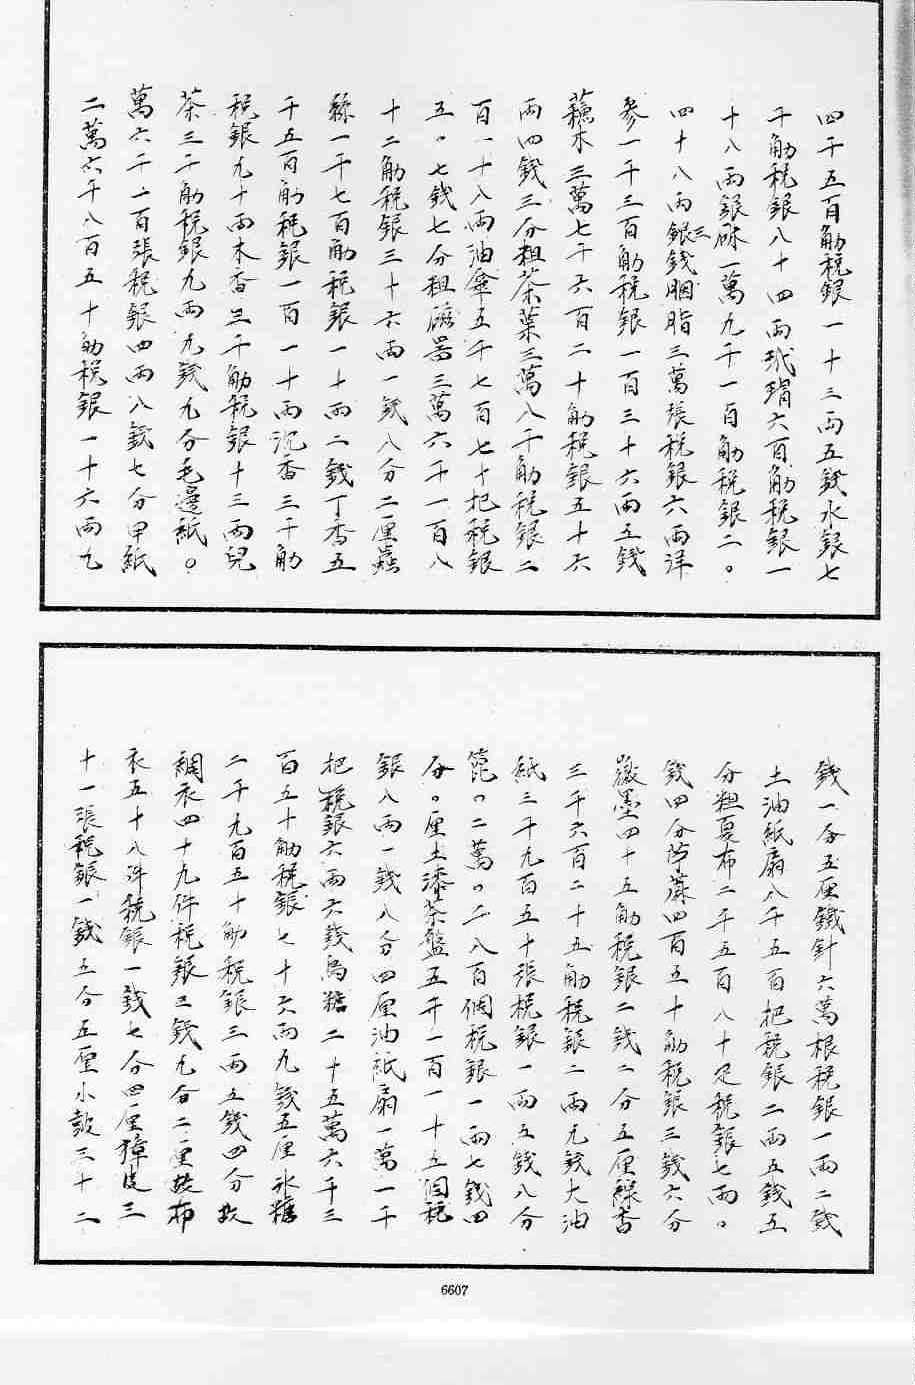 四千五百觔稅銀一十三兩五錢水銀七
千觔稅銀八十四兩玳瑁六百觔稅銀一
十八兩銀硃一萬九千一百觔稅銀二。
四十八兩銀三錢胭脂三萬張稅銀六兩洋
參一千三百觔稅銀一百三十六兩五錢
蘓木三萬七千六百二十觔稅銀五十六
兩四錢三分粗茶葉三萬八千觔稅銀二
百一十八兩油傘五千七百七十把稅銀
五。七錢七分粗磁器三萬六千一百八
十二觔稅銀三十六兩一錢八分二厘蟲
絲一千七百觔稅銀一十兩二錢丁香五
千五百觔稅銀一百一十兩沉香三千觔
稅銀九十兩木香三千觔稅銀十三兩兒
茶三千觔稅銀九兩九錢九分毛邊紙。
萬六千一百張稅銀四兩八錢七分甲紙
二萬六千八百五十觔稅銀一十六兩九
錢一分五厘鐵針六萬根稅銀一兩二錢
土油紙扇八千五百把稅銀二兩五錢五
分粗夏布二千五百八十疋稅銀七兩。
錢四分苧蔴四百五十觔稅銀三錢六分
徽墨四十五觔稅銀二錢二分五厘線香
三千六百二十五觔稅銀二兩九錢大油
紙三千九百五十張稅銀一兩五錢八分
篦。二萬。千八百個稅銀一兩七錢四
分。厘土漆茶盤五千一百一十五個稅
銀八兩一錢八分四厘油紙扇一萬一千
把稅銀六兩六錢烏糖二十五萬六千三
百五十觔稅銀七十六兩九錢五厘氷糖
二千九百五十觔稅銀三兩五錢四分故
綢衣四十九件稅銀三錢九分二厘故布
衣五十八件稅銀一錢七分四厘獐皮三
十一張稅銀一錢五分五厘小鼓三十二
6607